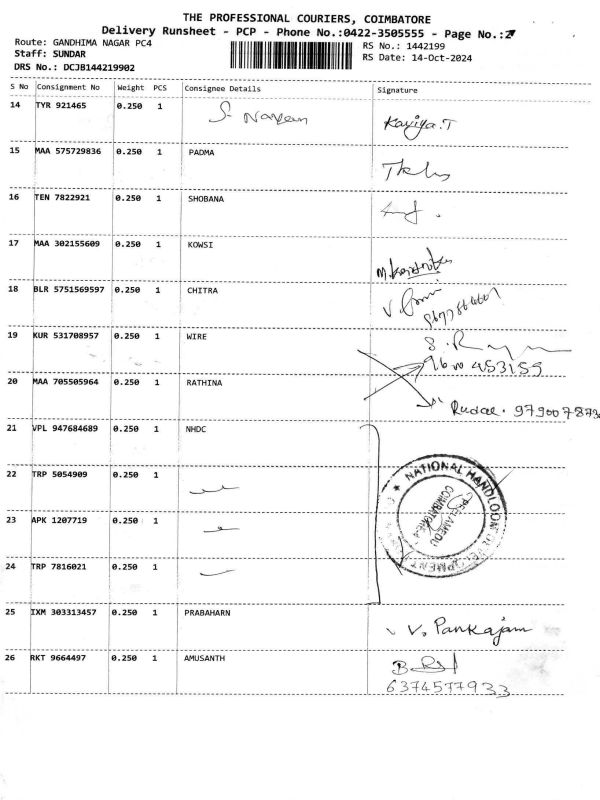 THE PROFESSIONAL COURIERS, COIMBATORE
Delivery Runsheet - PCP - Phone No.:0422-3505555 - Page No.:2
Route: GANDHIMA NAGAR PC4
RS No.: 1442199
Staff: SUNDAR
RS Date: 14-Oct-2024
DRS No.: DCJB144219902
S No Consignment No Weight PCS Consignee Details Signature
14 TYR 921465 0.250 1 S. Naveen Kayiya.T
15 MAA 575729836 0.250 1 PADMA
16 TEN 7822921 0.250 1 SHOBANA
17 MAA 302155609 0.250 1 KOWSI
18 BLR 5751569597 0.250 1 CHITRA
19 KUR 531708957 0.250 1 WIRE
20 MAA 705505964 0.250 1 RATHINA
21 VPL 947684689 0.250 1 NHDC
22 TRP 5054909 0.250 1
23 APK 1207719 0.250 1
24 TRP 7816021 0.250 1
NATIONAL HANDLOOM DEVELOPMENT
PEELAMEDU
COIMBATORE-4
25 IXM 303313457 0.250 1 PRABAHARN V. Pankajam
26 RKT 9664497 0.250 1 AMUSANTH
6374577933